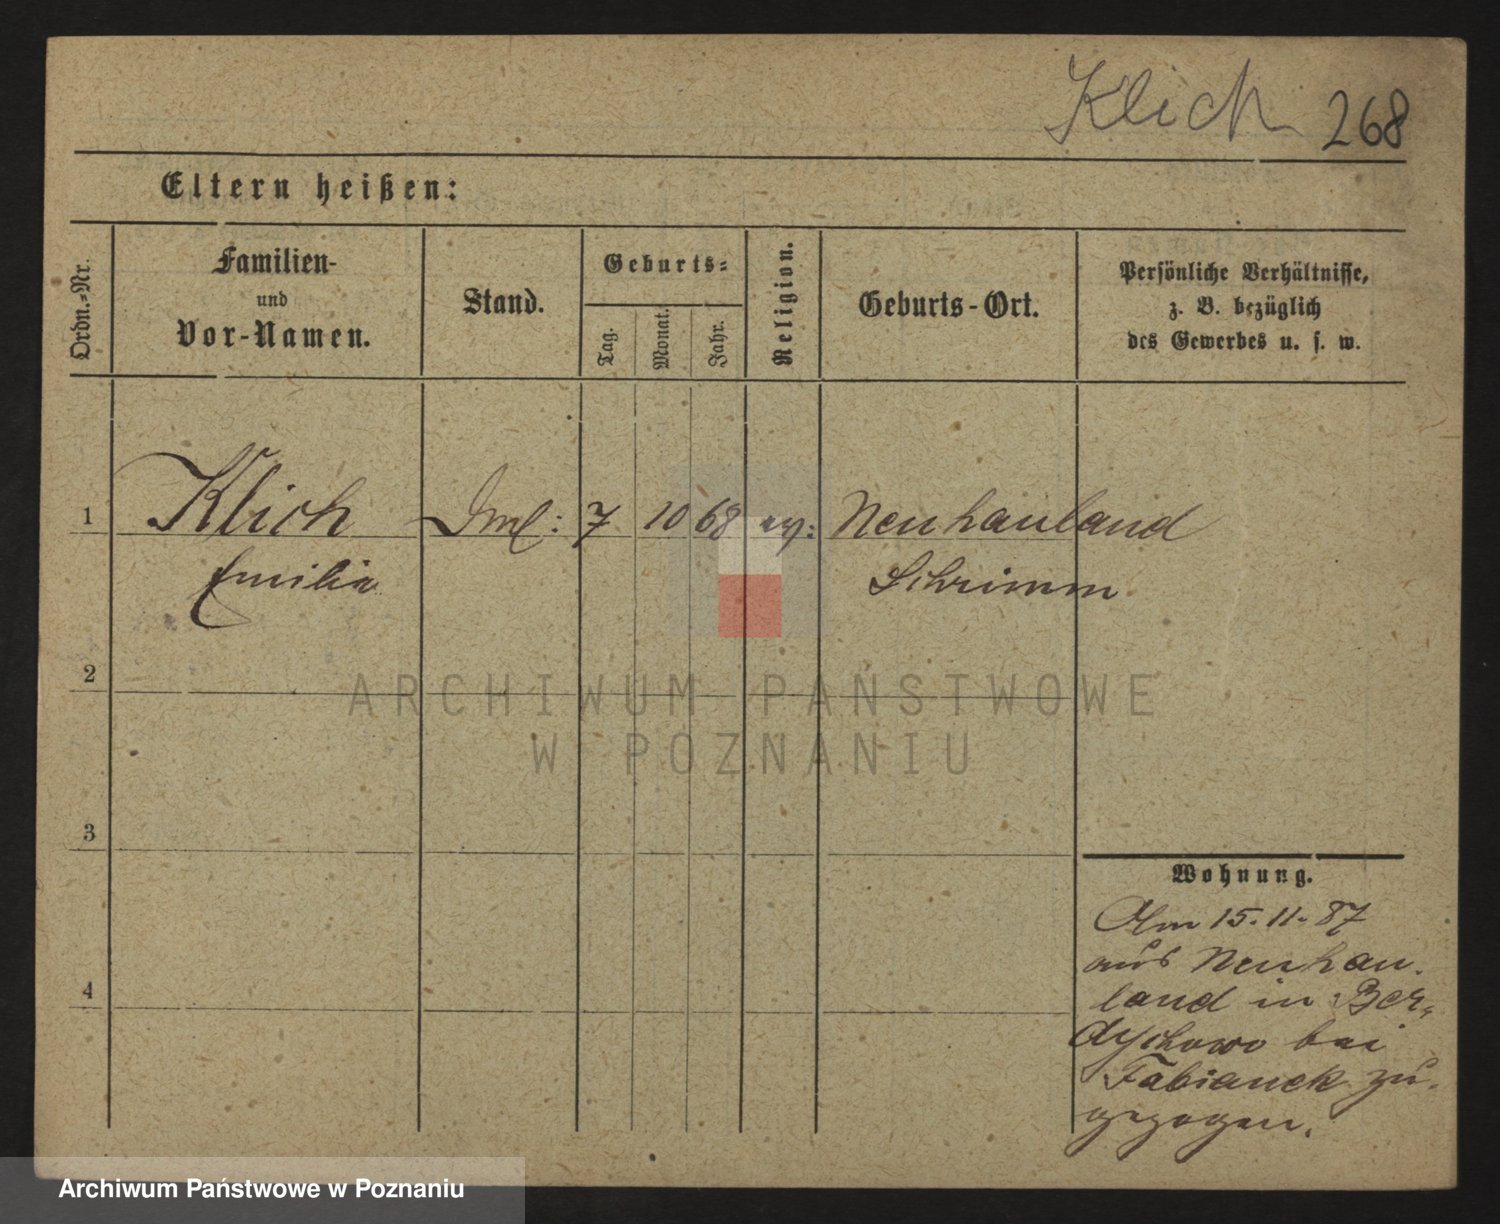 Klich 268
Eltern heißen:
Ordn.-Nr.
Familien-
und
Vor-Namen.
Stand.
Geburts-
Tag.
Monat.
Jahr.
Religion.
Geburts-Ort.
Persönliche Verhältnisse,
z. B. bezüglich
des Gewerbes u. s. w.
1 Klich 7 10 68 Neuhauland
Emilia Schrimm
2
3
4
Wohnung.
Am 15.11.87
aus Neuhau-
land in Ber-
dychowo bei
Fabianek zu-
gezogen.
ARCHIWUM PAŃSTWOWE
W POZNANIU
Archiwum Państwowe w Poznaniu